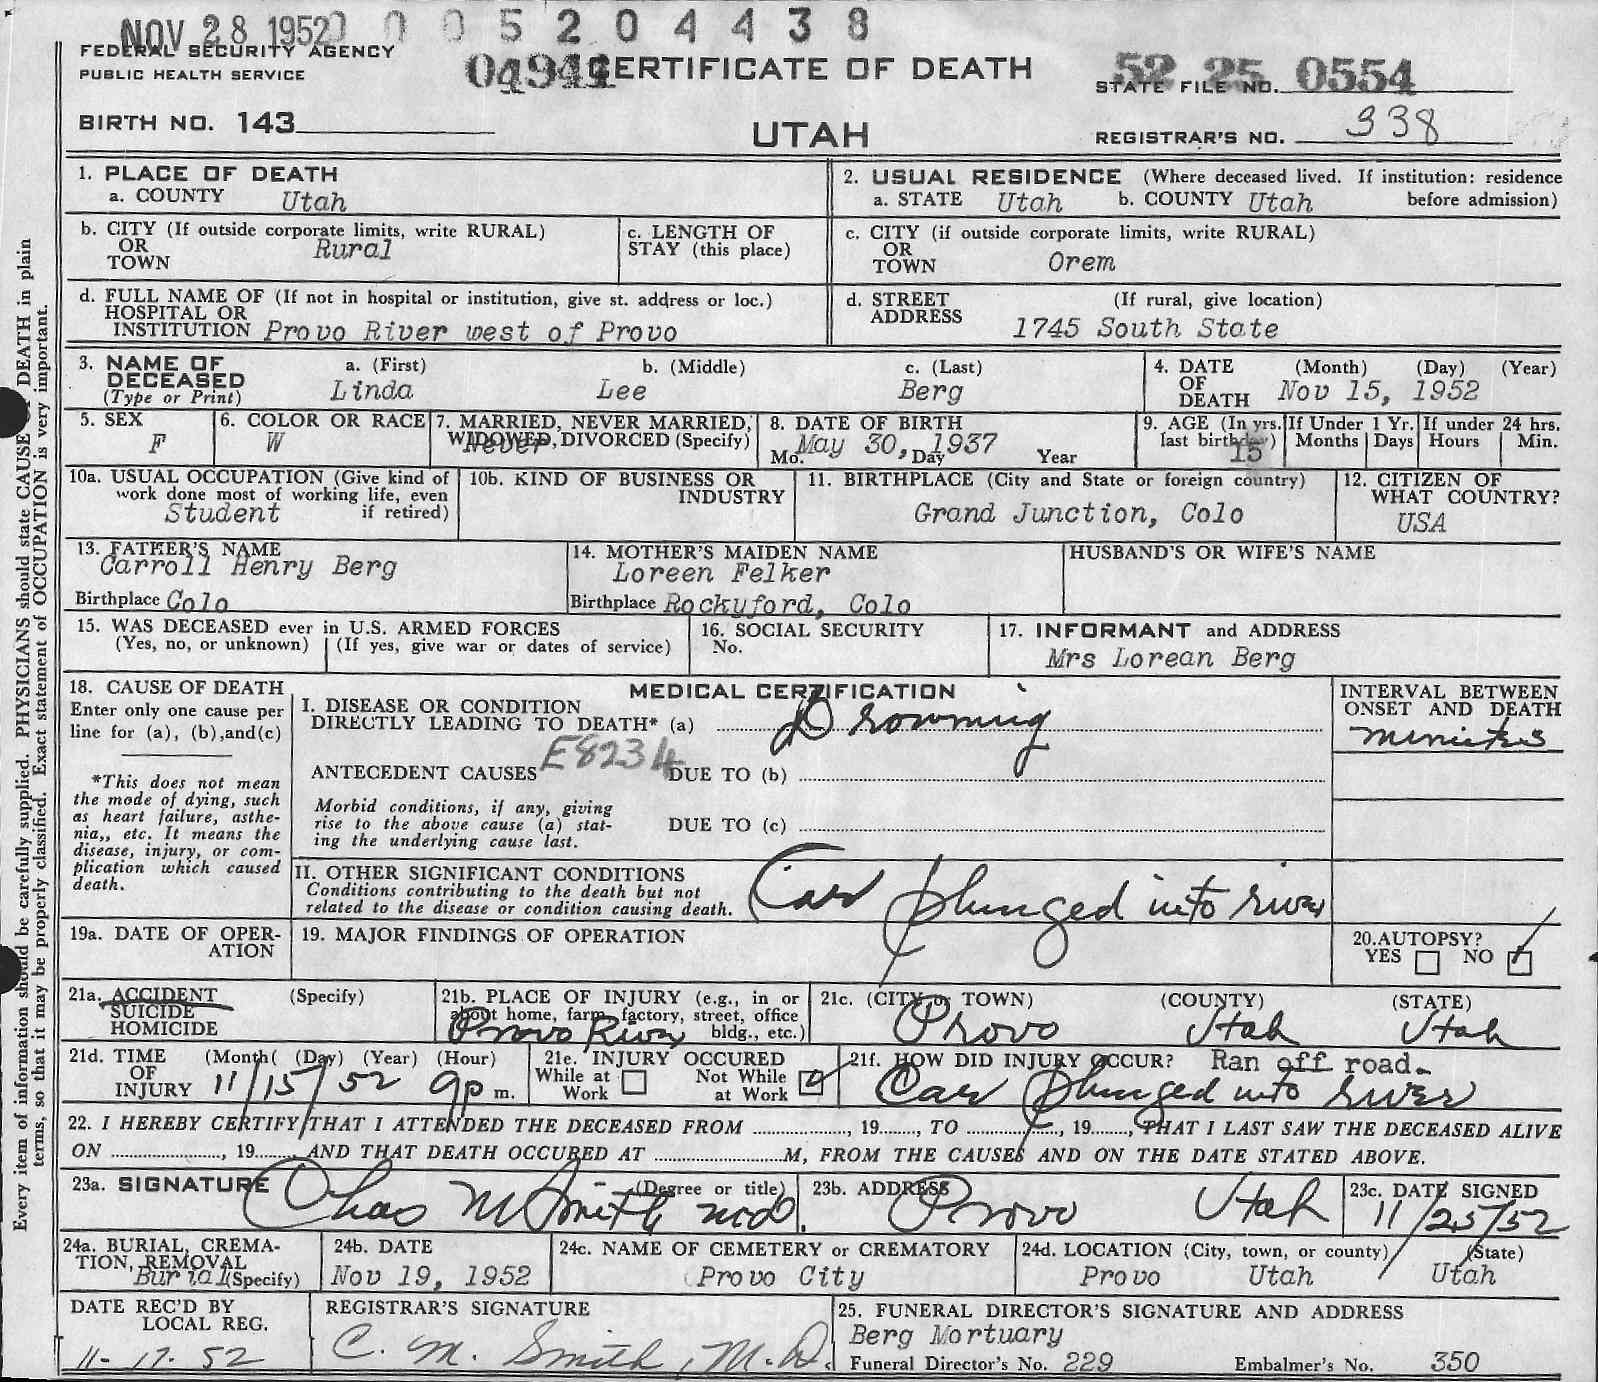 NOV 28 1952 0 0 5 2 0 4 4 3 8
FEDERAL SECURITY AGENCY
PUBLIC HEALTH SERVICE
CERTIFICATE OF DEATH
52 25 0554
STATE FILE NO.
BIRTH NO. 143
UTAH
REGISTRAR'S NO. 338
1. PLACE OF DEATH
a. COUNTY Utah
2. USUAL RESIDENCE (Where deceased lived. If institution: residence
a. STATE Utah b. COUNTY Utah before admission)
b. CITY (If outside corporate limits, write RURAL)
OR Rural
TOWN
c. LENGTH OF
STAY (this place)
c. CITY (if outside corporate limits, write RURAL)
OR
TOWN Orem
d. FULL NAME OF (If not in hospital or institution, give st. address or loc.)
HOSPITAL OR
INSTITUTION Provo River west of Provo
d. STREET (If rural, give location)
ADDRESS 1745 South State
3. NAME OF a. (First) b. (Middle) c. (Last)
DECEASED
(Type or Print) Linda Lee Berg
4. DATE (Month) (Day) (Year)
OF
DEATH Nov 15, 1952
5. SEX
F
6. COLOR OR RACE
W
7. MARRIED, NEVER MARRIED,
WIDOWED, DIVORCED (Specify)
Never
8. DATE OF BIRTH
Mo. May 30, Day 1937 Year
9. AGE (In yrs.
last birthday)
15
If Under 1 Yr.
Months Days
If under 24 hrs.
Hours Min.
10a. USUAL OCCUPATION (Give kind of
work done most of working life, even
Student if retired)
10b. KIND OF BUSINESS OR
INDUSTRY
11. BIRTHPLACE (City and State or foreign country)
Grand Junction, Colo
12. CITIZEN OF
WHAT COUNTRY?
USA
13. FATHER'S NAME
Carroll Henry Berg
Birthplace Colo
14. MOTHER'S MAIDEN NAME
Loreen Felker
Birthplace Rockyford, Colo
HUSBAND'S OR WIFE'S NAME
15. WAS DECEASED ever in U.S. ARMED FORCES
(Yes, no, or unknown) (If yes, give war or dates of service)
16. SOCIAL SECURITY
No.
17. INFORMANT and ADDRESS
Mrs Lorean Berg
18. CAUSE OF DEATH
Enter only one cause per
line for (a), (b),and(c)
*This does not mean
the mode of dying, such
as heart failure, asthe-
nia,, etc. It means the
disease, injury, or com-
plication which caused
death.
MEDICAL CERTIFICATION
I. DISEASE OR CONDITION
DIRECTLY LEADING TO DEATH* (a) Drowning
E8234
ANTECEDENT CAUSES DUE TO (b)
Morbid conditions, if any, giving
rise to the above cause (a) stat- DUE TO (c)
ing the underlying cause last.
INTERVAL BETWEEN
ONSET AND DEATH
minutes
II. OTHER SIGNIFICANT CONDITIONS
Conditions contributing to the death but not
related to the disease or condition causing death.
Car plunged into river
19a. DATE OF OPER-
ATION
19. MAJOR FINDINGS OF OPERATION
20.AUTOPSY?
YES NO
21a. ACCIDENT (Specify)
SUICIDE
HOMICIDE
21b. PLACE OF INJURY (e.g., in or
about home, farm, factory, street, office
bldg., etc.)
Provo River
21c. (CITY or TOWN) (COUNTY) (STATE)
Provo Utah Utah
21d. TIME (Month( (Day) (Year) (Hour)
OF
INJURY 11/15/52 9p m.
21e. INJURY OCCURED
While at Not While
Work at Work
21f. HOW DID INJURY OCCUR? Ran off road.
Car plunged into river
22. I HEREBY CERTIFY THAT I ATTENDED THE DECEASED FROM ..............., 19......., TO ..............., 19......., THAT I LAST SAW THE DECEASED ALIVE
ON ..................., 19....... AND THAT DEATH OCCURED AT ....................M, FROM THE CAUSES AND ON THE DATE STATED ABOVE.
23a. SIGNATURE (Degree or title)
Chas M Smith md.
23b. ADDRESS
Provo Utah
23c. DATE SIGNED
11/25/52
24a. BURIAL, CREMA-
TION, REMOVAL
Burial (Specify)
24b. DATE
Nov 19, 1952
24c. NAME OF CEMETERY or CREMATORY
Provo City
24d. LOCATION (City, town, or county) (State)
Provo Utah Utah
DATE REC'D BY
LOCAL REG.
11-17-52
REGISTRAR'S SIGNATURE
C. M. Smith, M.D.
25. FUNERAL DIRECTOR'S SIGNATURE AND ADDRESS
Berg Mortuary
Funeral Director's No. 229 Embalmer's No. 350
Every item of information should be carefully supplied. PHYSICIANS should state CAUSE DEATH in plain
terms, so that it may be properly classified. Exact statement of OCCUPATION is very important.